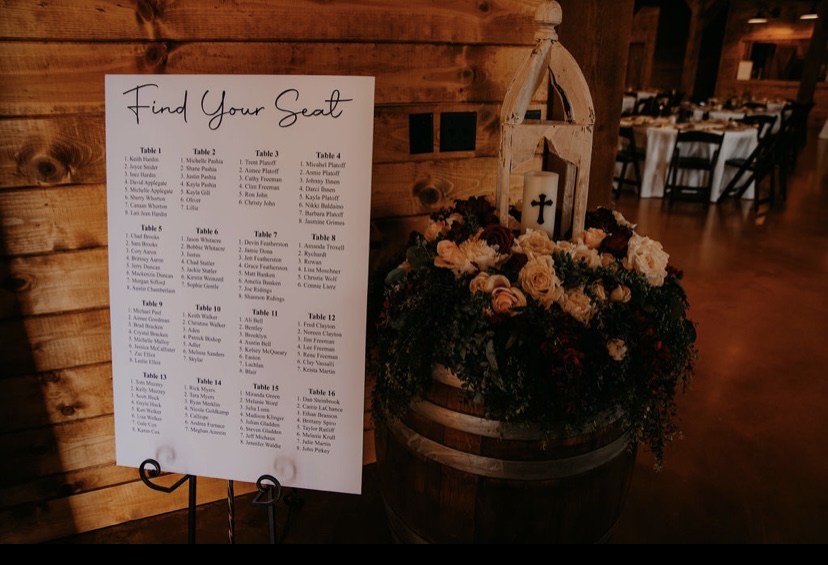 Find Your Seat
Table 1
1. Keith Hardin
2. Joyce Snider
3. Inez Hardin
4. David Applegate
5. Michelle Applegate
6. Sherry Wherton
7. Caisan Wherton
8. Lari Jean Hardin
Table 2
1. Michelle Pashia
2. Shane Pashia
3. Justin Pashia
4. Kayla Pashia
5. Kayla Gill
6. Oliver
7. Lillie
Table 3
1. Trent Platoff
2. Aimee Platoff
3. Cathy Freeman
4. Clint Freeman
5. Ron John
6. Christy John
Table 4
1. Mirahel Platoff
2. Annie Platoff
3. Johnny Ihnen
4. Darci Ihnen
5. Kayla Platoff
6. Nikki Baldaino
7. Barbara Platoff
8. Jasmine Gromus
Table 5
1. Chad Brooks
2. Sara Brooks
3. Cory Aaron
4. Brittney Aaron
5. Jerry Duncan
6. Mackenzie Duncan
7. Morgan Sifford
8. Austin Chamberlain
Table 6
1. Jason Whitacre
2. Bobbie Whitacre
3. Justus
4. Chad Statler
5. Jackie Statler
6. Kirstin Weinard
7. Sophie Gentle
Table 7
1. Devin Featherston
2. Jamie Dona
3. Jett Featherston
4. Grace Featherston
5. Matt Banken
6. Amelia Banken
7. Joe Ridings
8. Shannon Ridings
Table 8
1. Amanda Troxell
2. Rychardt
3. Rowan
4. Lisa Moschner
5. Christie Wolf
6. Connie Lantz
Table 9
1. Michael Paul
2. Aimee Goodman
3. Brad Bracken
4. Crystal Bracken
5. Michelle Malloy
6. Jessica McCallister
7. Zac Elfter
8. Leslie Elfter
Table 10
1. Keith Walker
2. Christine Walker
3. Aden
4. Patrick Bishop
5. Adler
6. Melissa Sanders
7. Skylar
Table 11
1. Ali Bell
2. Bentley
3. Brooklyn
4. Austin Bell
5. Kelsey McQueary
6. Easton
7. Lachlan
8. Blair
Table 12
1. Fred Clayton
2. Noreen Clayton
3. Jim Freeman
4. Lee Freeman
5. Rene Freeman
6. Clay Vassalli
7. Krista Martin
Table 13
1. Sam Muzzey
2. Kelly Muzzey
3. Scott Hack
4. Gayla Hack
5. Ken Walker
6. Lisa Walker
7. Gale Cox
8. Karen Cox
Table 14
1. Rick Myers
2. Tara Myers
3. Ryan Matklin
4. Nicole Goldkamp
5. Calliope
6. Andrea Furnace
7. Meghan Amsson
Table 15
1. Miranda Green
2. Melanie Woul
3. Julia Lunn
4. Madison Klinger
5. Julian Gladden
6. Steven Gladden
7. Jeff Michaux
8. Jennifer Waldis
Table 16
1. Dan Steinbrook
2. Carrie LaChance
3. Ethan Branson
4. Brittany Spiro
5. Taylor Ratliff
6. Melanie Krull
7. Julie Martin
8. John Pirkey